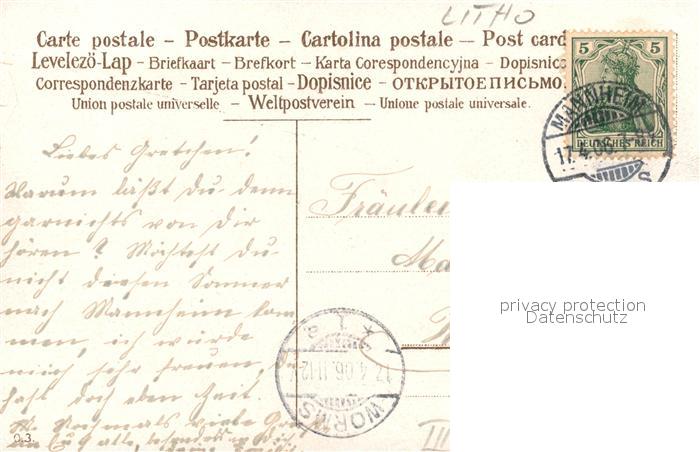 LITHO
Carte postale – Postkarte – Cartolina postale – Post card
Levelezö-Lap – Briefkaart – Brefkort – Karta Corespondencyjna – Dopisnice
Correspondenzkarte – Tarjeta postal – Dopisnice – ОТКРЫТОЕ ПИСЬМО.
Union postale universelle – Weltpostverein – Unione postale universale.
5 5
DEUTSCHES REICH
MANNHEIM
17.4.06.
Liebes Gretchen!
Warum läßt du denn
garnichts von dir
hören? Möchtest du
nicht diesen Sommer
nach Mannheim kom
men, ich würde
mich sehr freuen,
hast doch eben Zeit.
Nochmals viele
alle,
Fräulein
Ma
III
WORMS
17.4.06. 11-12
privacy protection
Datenschutz